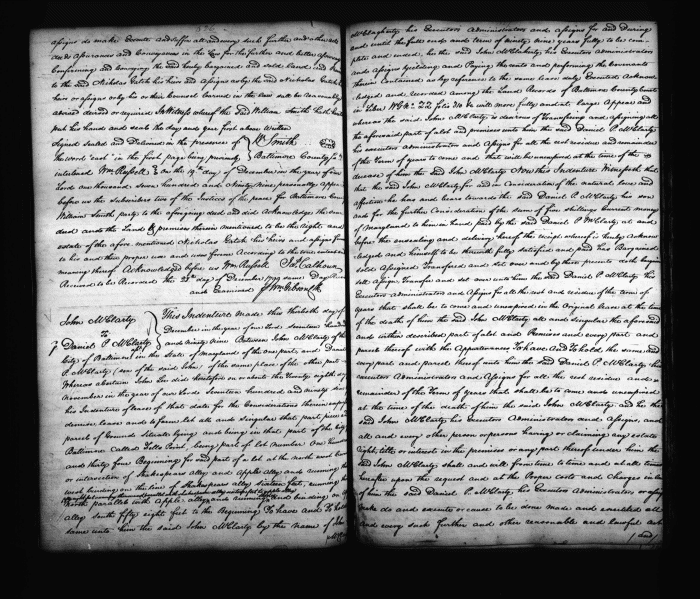 assigns do make Execute and suffer all and every such further and other acts
deeds assurances and Conveyances in the Law for the further and better assuring
Confirming and Conveying the said hereby bargained and sold land and
to the said Nicholas Gatch his heirs and assigns as by the said Nicholas Gatch
heirs or assigns or by his or their Counsel learned in the law shall be reasonably
advised devised or required In Witness whereof the said William Smith hath hereunto
put his hand and seal the day and year first above Written
Signed Sealed and Delivered in the presence of Wm Smith
the word "each" in the first page being previously Baltimore County
interlined Wm Russell on the 19th day of December in the year of our
Lord one thousand seven hundred and Ninety Nine personally appeared
before us the Subscribers two of the Justices of the peace for Baltimore County
William Smith party to the aforegoing deed and did Acknowledge the same
deed and the Land & premises therein mentioned to be the right and
estate of the afore mentioned Nicholas Gatch his heirs and assigns forever
to his and their proper use and uses forever According to the true intent and
meaning thereof Acknowledged before us Wm Russell Jas Calhoun
Received to be Recorded the 23d day of December 1799 same Day Recorded
and Examined Wm Gibson Clk
John McClarty
to
Daniel P McClarty
This Indenture made this day of
December in the year of our Lord seventeen hundred
and ninety Nine Between John McClarty of the
City of Baltimore in the State of Maryland of the one part and Daniel
P McClarty (son of the said John) of the same place of the other part
Whereas a certain John Lee did heretofore on or about the twenty eighth day
November in the year of our Lord Seventeen hundred and ninety
his Indenture of lease of that date for the Considerations therein
demise lease and to farm let all and singular that part piece or
parcel of Ground Situate lying and being in that part of the City
Baltimore Called Fells Point being part of lot number One hundred
and thirty four Beginning for said part of a lot at the north west
or intersection of Shakespears alley and apple alley and running
west binding on the line of Shakespears alley sixteen feet, running
North parallel with Apple alley and binding on
alley south fifty eight feet to the Beginning To have and To hold
same unto him the said John McClarty by the name of John
McClagherty his Executors Administrators and assigns for and During
and until the full end and term of ninety Nine years fully to be com
plete and ended, he the said John McClaherty his Executors administrators
and assigns yielding and Paying the rents and performing the Covenants
therein Contained as by reference to the same lease duly Executed Acknow
ledged and recorded among the Land Records of Baltimore County Court
in Liber WG No ZZ folio will more fully and at large Appear and
whereas the said John McClarty is desirous of transferring and assigning all
the aforesaid part of a lot and premises unto him the said Daniel P McClarty
his executors administrators and Assigns for all the rest residue and remainder
of the Term of years to come and that will be unexpired at the time of the
decease of him the said John McClarty Now this Indenture Witnesseth that
that the said John McClarty for and in Consideration of the natural love and
affection he has and bears towards the said Daniel P McClarty his son
and for the further Consideration of the sum of five shillings Current money
of Maryland to him in hand paid by the said Daniel P McClarty at and
before the ensealing and delivery hereof the receipt whereof is hereby acknow
ledged and himself to be therewith fully satisfied and paid has Bargained
sold assigned Transferred and set over and by these presents doth bargain
sell assign Transfer and set over unto him the said Daniel P McClarty his
Executors Administrators and assigns for all the rest and residue of the term of
years that shall be to come and unexpired in the original lease at the time
of the death of him the said John McClarty all and singular the aforesaid
and within described part of a lot and Premises and every part and
parcel thereof with the Appurtenances To have And To hold the same and
every part and parcel thereof unto him the said Daniel P McClarty his
executors Administrators and Assigns for all the rest residue and
remainder of the Term of years that shall be to come and unexpired
at the time of the death of him the said John McClarty and he the
said John McClarty his Executors Administrators and Assigns and
all and every other person or persons having or claiming any estate
right title or interest in the premises or any part thereof under him the
said John McClarty shall and will from time to time and at all times
hereafter upon the request and at the Proper costs and charges in law
of him the said Daniel P McClarty, his Executors Administrators or assigns
make do and execute or cause to be done made and executed all
and every such further and other reasonable and lawful act
and